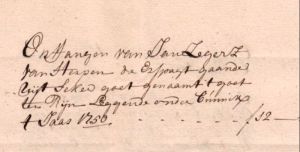 Ontfangen van Jan Zegerz
van Heusen de Erfpagt gaande
uijt seker goet genaamt t goet
ten Rijn Leggende onder Emmik
t Jaar 1756 - - - - - - - - f 12 -